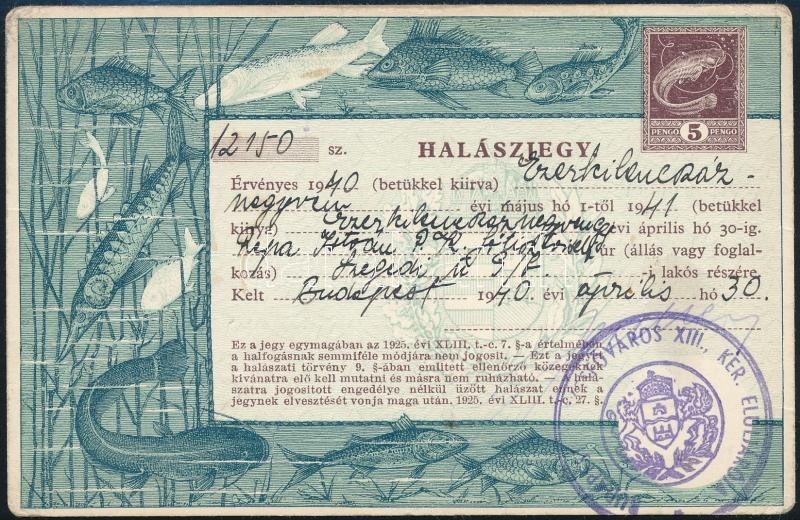 PENGŐ 5 PENGŐ
12150 sz. HALÁSZJEGY
Érvényes 1940 (betükkel kiirva) Ezerkilencszáz-
negyven évi május hó 1-től 1941 (betükkel
kiirva) Ezerkilencszáznegyvenegy évi április hó 30-ig.
Répa István úr (állás vagy foglal-
kozás) Szegedi út -i lakós részére.
Kelt Budapest 1940. évi április hó 30.
Ez a jegy egymagában az 1925. évi XLIII. t.-c. 7. §-a értelmében
a halfogásnak semmiféle módjára nem jogosit. — Ezt a jegyet
a halászati törvény 9. §-ában emlitett ellenőrző közegeknek
kivánatra elő kell mutatni és másra nem ruházható. — A halá-
szatra jogositott engedélye nélkül üzött halászat ennek a
jegynek elvesztését vonja maga után. 1925. évi XLIII. t.-c. 27. §.
VÁROS XIII., KER. ELÖLJÁRÓ